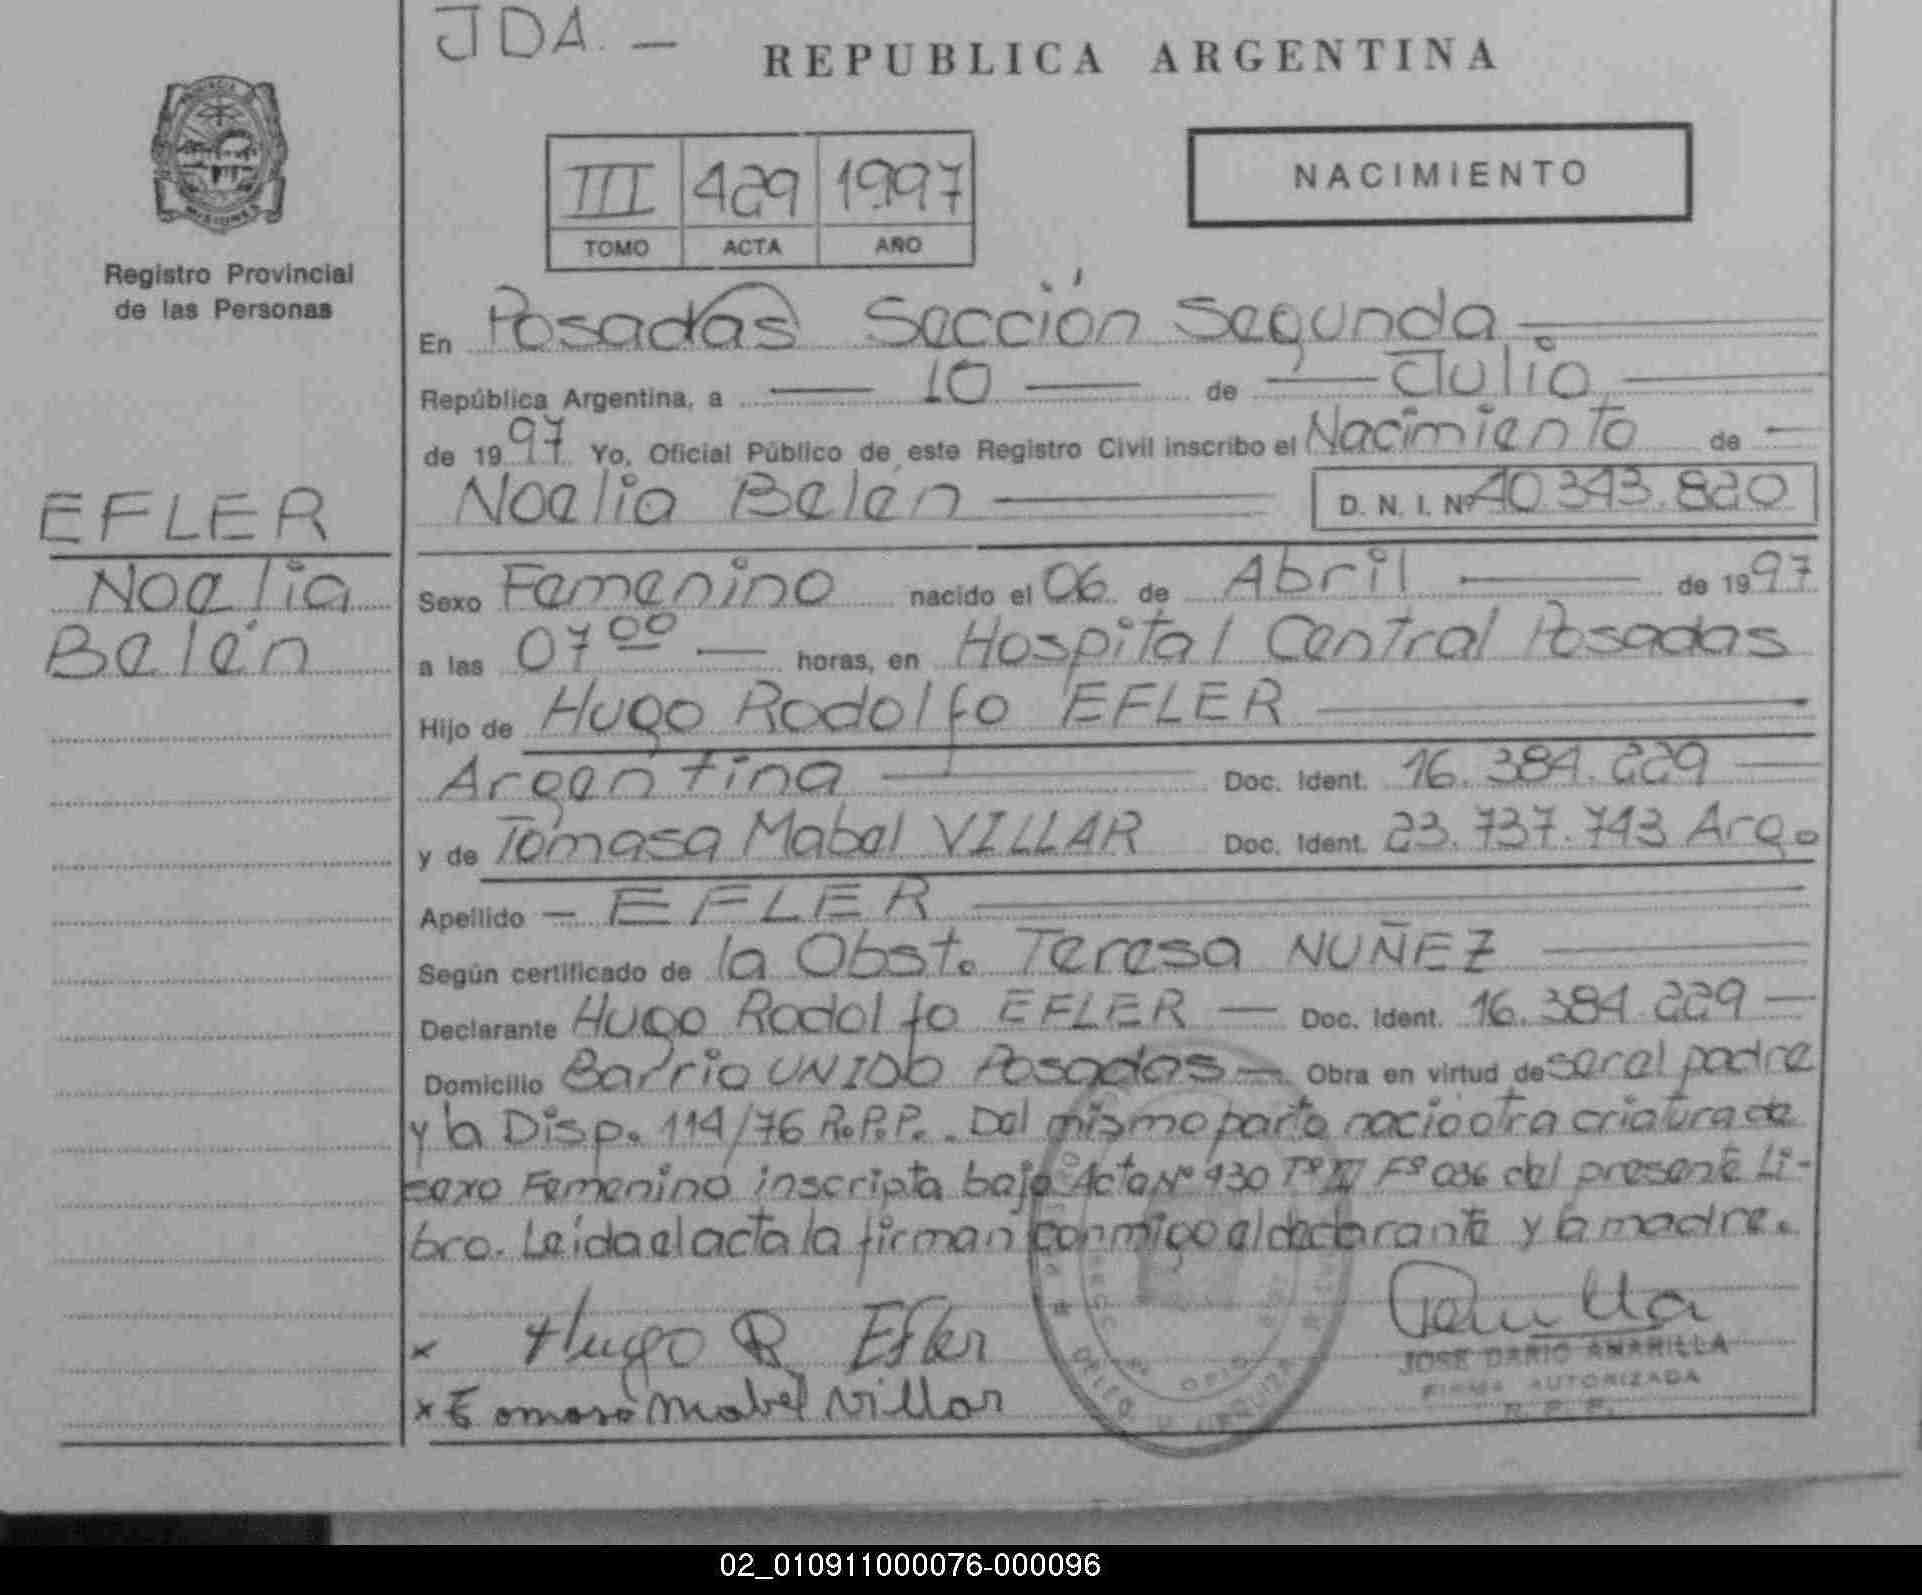 JDA. —
REPUBLICA ARGENTINA
PROVINCIA
MISIONES
Registro Provincial
de las Personas
III 429 1997
TOMO ACTA AÑO
NACIMIENTO
En Posadas Sección Segunda
República Argentina, a — 10 — de — Julio
de 1997 Yo, Oficial Público de este Registro Civil inscribo el Nacimiento de —
Noelia Belén — D. N. I. Nº 40.343.820
EFLER
Noelia
Belén
Sexo Femenino nacido el 06 de Abril — de 1997
a las 07 00 — horas, en Hospital Central Posadas
Hijo de Hugo Rodolfo EFLER —
Argentina — Doc. Ident. 16.384.229 —
y de Tomasa Mabel VILLAR Doc. Ident. 23.737.743 Arg.
Apellido — EFLER —
Según certificado de la Obst. Teresa NUÑEZ —
Declarante Hugo Rodolfo EFLER — Doc. Ident. 16.384.229 —
Domicilio Barrio UNIDO Posadas — Obra en virtud de ser el padre
y la Disp. 114/76 R.P.P.. Del mismo parto nacio otra criatura de
sexo Femenino inscripta bajo Acta Nº 430 Tº III Fº 036 del presente Li-
bro. Leída el acta la firman conmigo el declarante y la madre.
x Hugo R Efler
x Tomasa Mabel Villar
JOSE DARIO AMARILLA
FIRMA AUTORIZADA
R. P. P.
02_010911000076-000096